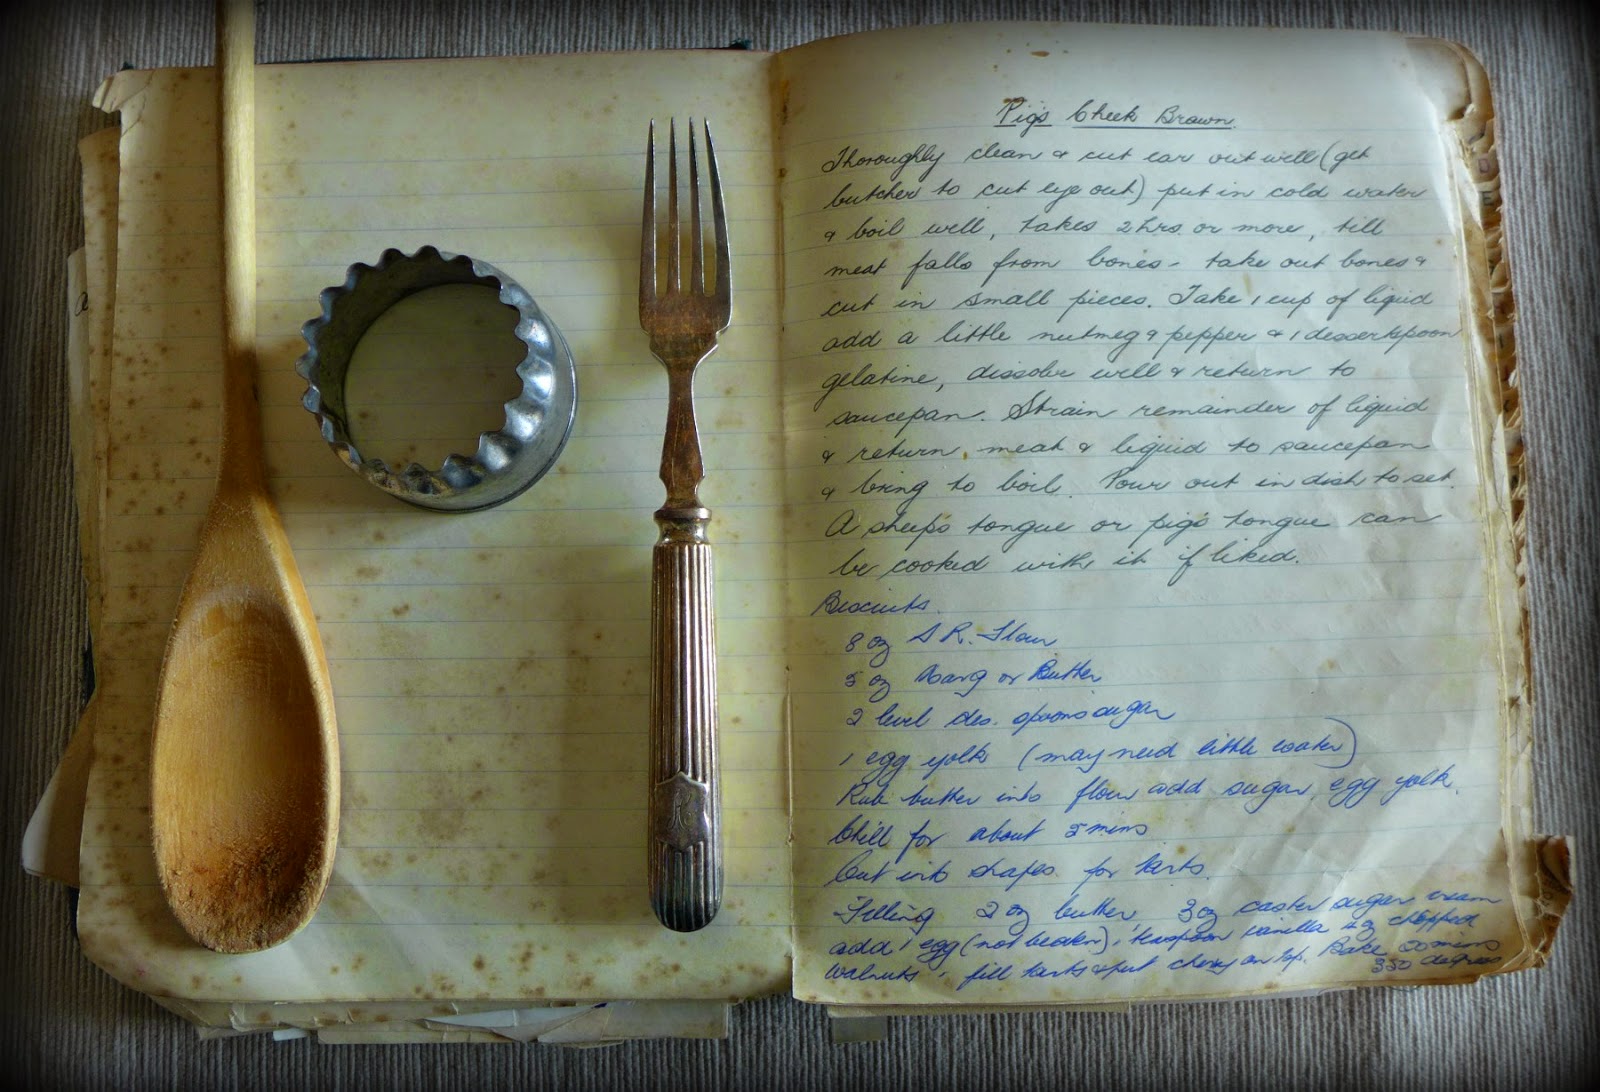 Pig's Cheek Brawn.
Thoroughly clean & cut ear out well (get
butcher to cut eye out) put in cold water
& boil well, takes 2 hrs. or more, till
meat falls from bones - take out bones &
cut in small pieces. Take 1 cup of liquid
add a little nutmeg & pepper & 1 dessertspoon
gelatine, dissolve well & return to
saucepan. Strain remainder of liquid
& return meat & liquid to saucepan
& bring to boil. Pour out in dish to set.
A sheep's tongue or pig's tongue can
be cooked with it if liked.
Biscuits.
8 oz S R. Flour
5 oz Marg or Butter
2 level des. spoons sugar
1 egg yolk (may need little water)
Rub butter into flour add sugar, egg yolk.
Chill for about 5 mins
Cut into shapes for tarts.
Filling 2 oz butter, 3 oz caster sugar cream
add 1 egg (not beaten), 1 teaspoon vanilla 4 oz chopped
walnuts, fill tarts & put cherry on top. Bake 20 mins
350 degrees